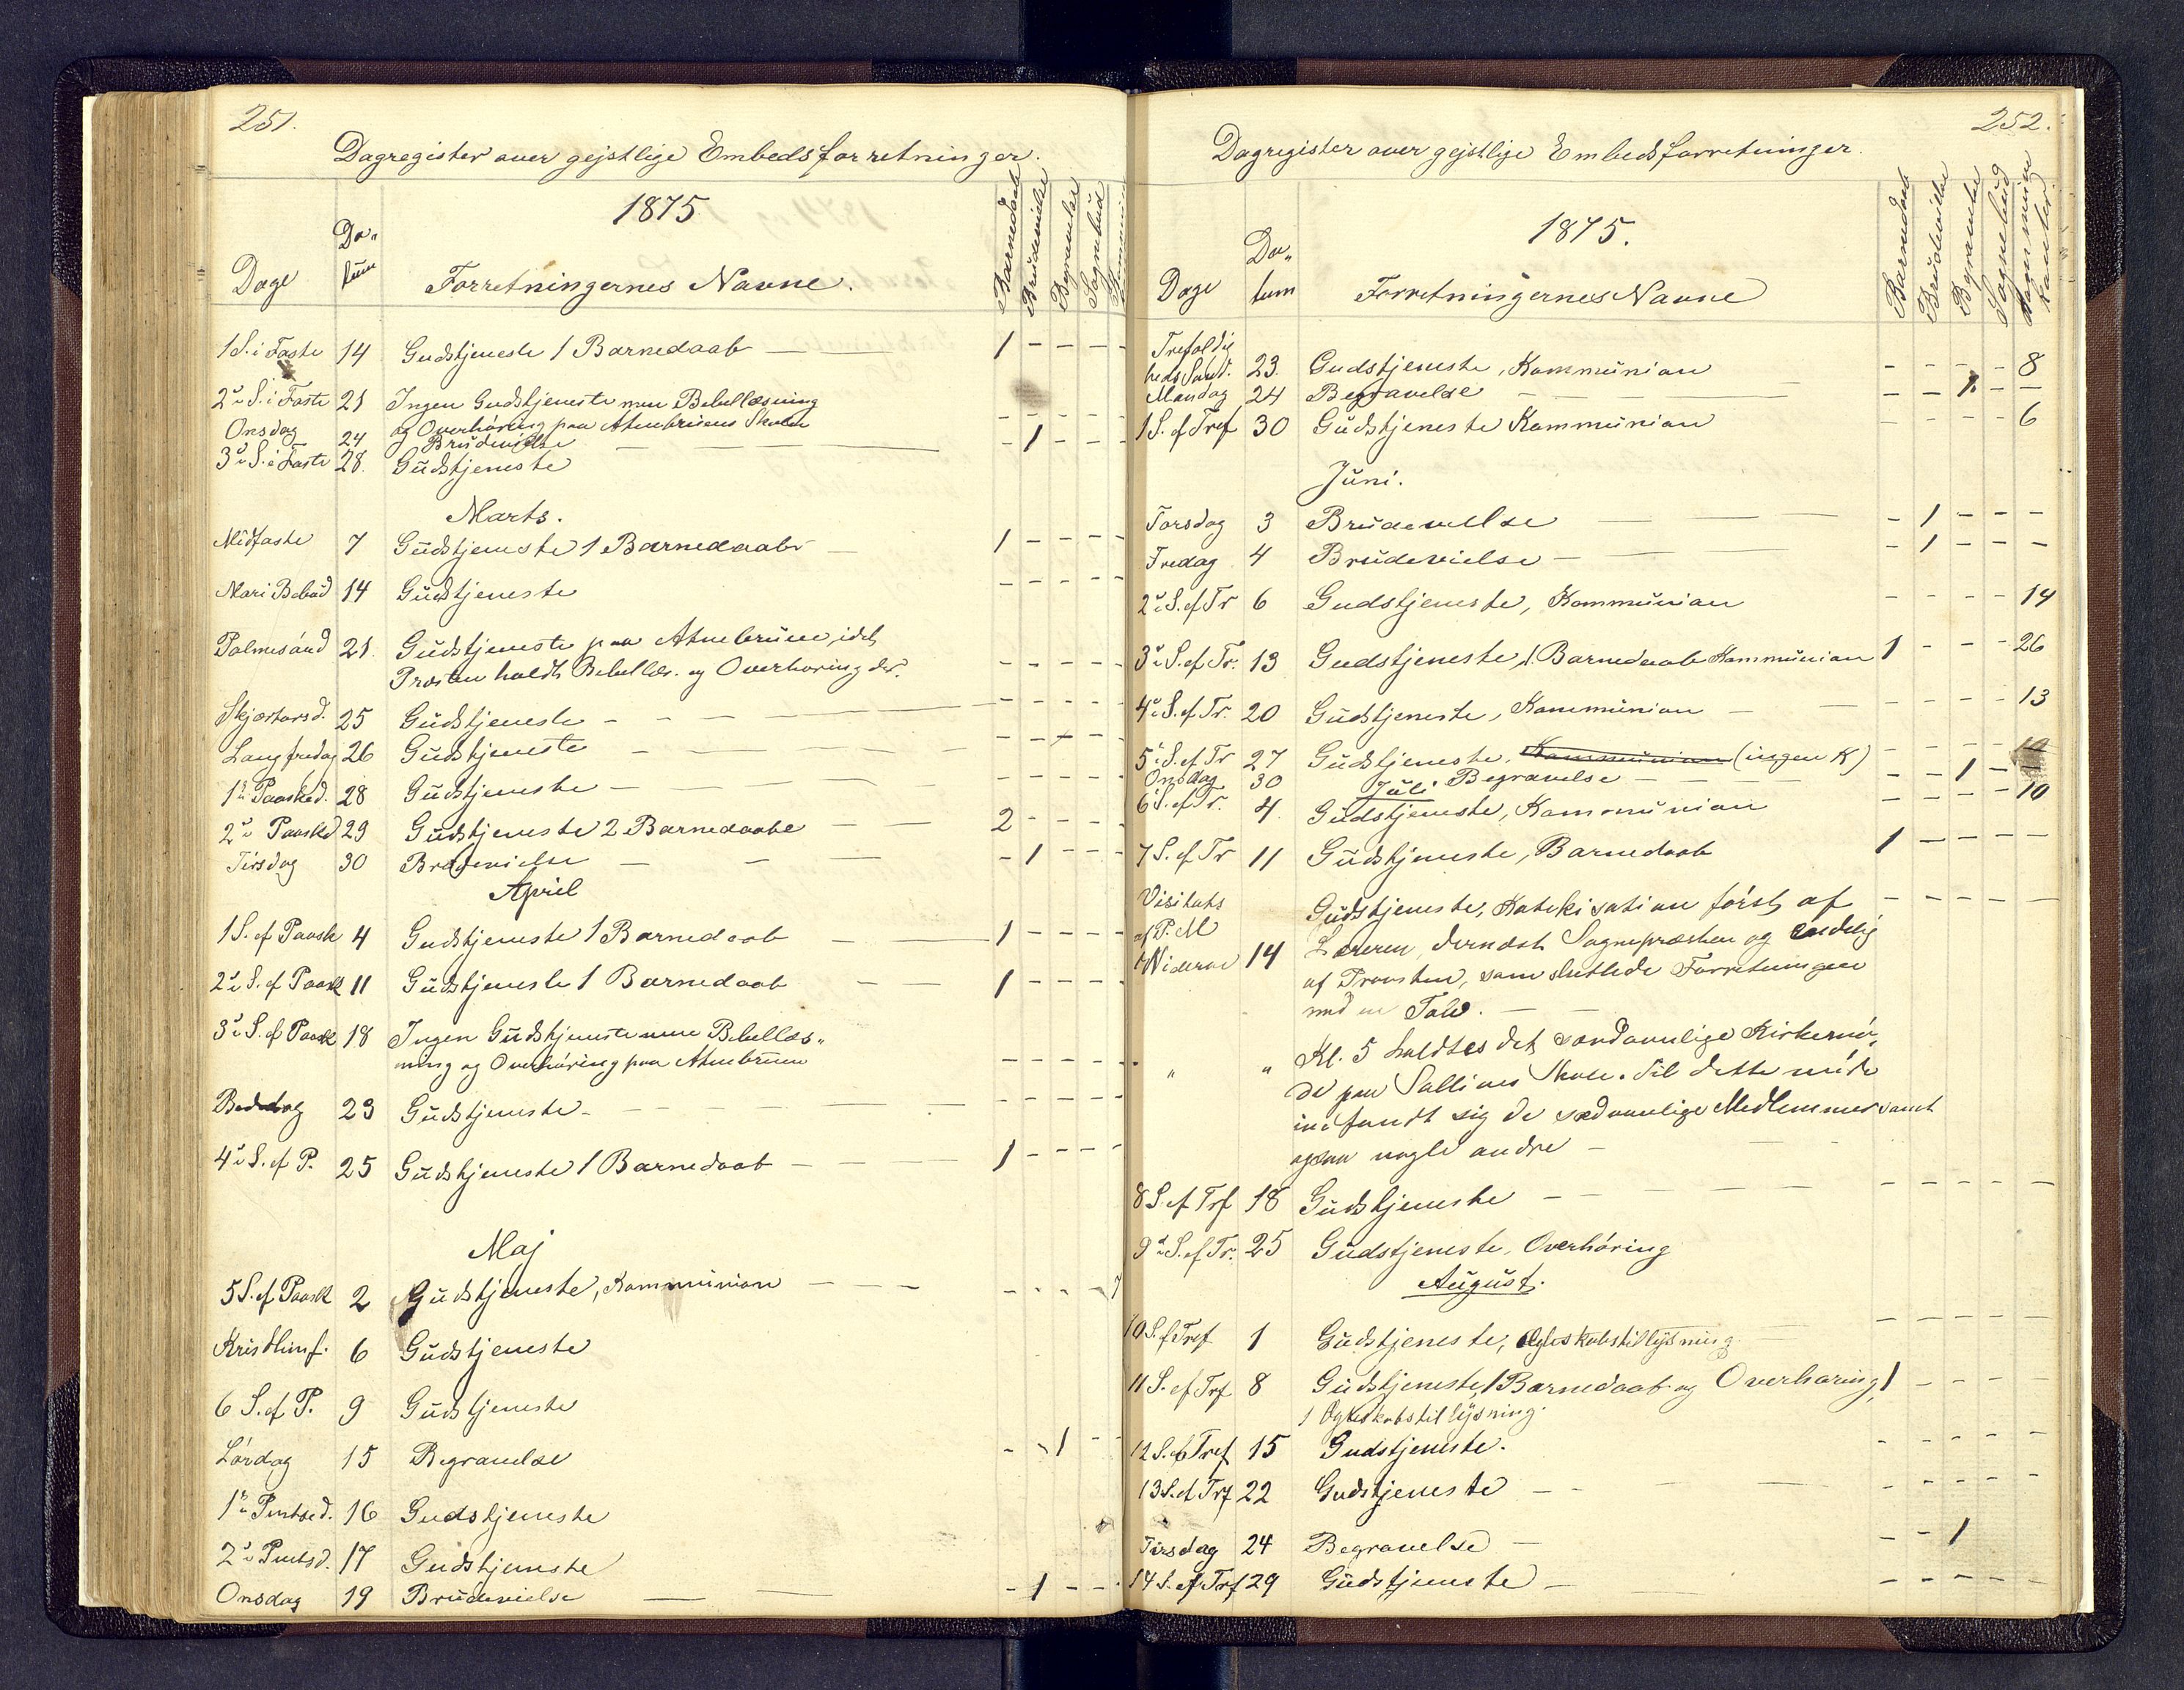 251.
Dagregister over gejstlige Embedsforretninger.
1875
Dage
Da-
tum
Forretningernes Navne.
Barnedaab
Brudevielse
Begravelse
Sognebud
1 S. i Faste 14 Gudstjeneste 1 Barnedaab — — 1 - - - -
2den S. i Faste 21 Ingen Gudstjeneste men Bibellæsning
og Overhøring paa Atnebruens Skole - - - - -
Onsdag 24 Brudevielse — — - 1 - - -
3die S. i Faste 28. Gudstjeneste
Marts.
Midfaste 7 Gudstjeneste 1 Barnedaab — 1 - - - -
Mari Bebud 14 Gudstjeneste - - - - -
Palmesønd 21. Gudstjeneste paa Atnebruen, idet
Præsten holdt Bibellæs. og Overhøring der. - - - - -
Skjærtorsd. 25 Gudstjeneste - — — - - - - -
Langfredag 26 Gudstjeneste — — - - - - -
1ste Paasked. 28 Gudstjeneste — — - - - - -
2den Paasked 29 Gudstjeneste 2 Barnedaabe — — 2 - - - -
Tirsdag 30 Brudevielse — — — - 1 - - -
April
1 S. ef Paask 4 Gudstjeneste 1 Barnedaab — — 1 - - - -
2den S. ef Paask 11 Gudstjeneste 1 Barnedaab — — 1 - - - -
3die S. ef Paask 18 Ingen Gudstjeneste men Bibellæs-
ning og Overhøring paa Atnebruen - - - - -
Bededag 23 Gudstjeneste - — — - - - - -
4de S. ef P. 25 Gudstjeneste 1 Barnedaab — — 1 - - - -
Maj
5 S. ef Paask 2 Gudstjeneste, Kommunion — — - - - - 7
Kristi Himf. 6 Gudstjeneste
6 S. ef P. 9 Gudstjeneste
Lørdag 15 Begravelse - - 1 - -
1ste Pintsed. 16 Gudstjeneste
2den Pintsd. 17 Gudstjeneste
Onsdag 19 Brudevielse — — - 1 - - -
252.
Dagregister over gejstlige Embedsforretninger.
1875.
Dage
Da-
tum
Forretningernes Navne
Barnedaab
Brudevielse
Begravelse
Sognebud
Kommuni
kanter
Trefoldig
heds Sønd. 23. Gudstjeneste, Kommunion - - - - 8
Mandag 24 Begravelse — — - - 1 - -
1 S. ef Tref 30 Gudstjeneste Kommunion - - - - 6
Juni.
Torsdag 3 Brudevielse — — - 1 - - -
Fredag 4 Brudevielse — — - 1 - - -
2den S. ef Tr 6 Gudstjeneste, Kommunion - - - - 14
3die S. ef Tr. 13 Gudstjeneste, 1. Barnedaab Kommunion 1 - - - 26
4de S. ef Tr. 20 Gudstjeneste, Kommunion — - - - - 13
5te S. ef Tr 27 Gudstjeneste, Kommunion (ingen K) - - - -
Onsdag 30 Begravelse — — - - 1 - -
Juli
6 S. ef Tr. 4. Gudstjeneste, Kommunion - - - - 10
7 S. ef Tr 11 Gudstjeneste, Barnedaab 1 - - - -
Visitats Gudstjeneste, Katekisation først af - - - - -
af P. M Læreren, dernæst Sognepræsten og endelig
14 af Provsten, som sluttede Forretningen
med en Tale. —
" " Kl. 5 holdtes det sædvanlige Kirkemø-
de paa Sollien Skole. Til dette møde
indfandt sig de sædvanlige Medlemmer samt
ogsaa nogle andre -
8 S. ef Trf 18 Gudstjeneste — — - - - - -
9de S. ef Tr. 25 Gudstjeneste, Overhøring
August.
10 S. ef Tref 1 Gudstjeneste, Ægteskabstillysning - - - - -
11 S. ef Trf 8 Gudstjeneste, 1 Barnedaab og Overhøring, 1 - - - -
1 Ægteskabstillysning.
12 S. ef Tref 15 Gudstjeneste. - - - - -
13 S. ef Trf 22 Gudstjeneste — — - - - - -
Tirsdag 24 Begravelse — - - 1
14 S. ef Trf 29 Gudstjeneste — - - - - -